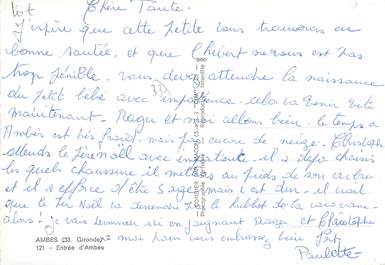 Chère Tante.
J'espère que cette petite vous trouvera en
bonne santée, et que l'hivert ne vous est pas
trop pénible. vous devez attendre la naissance
du petit bébé avec impatience. cela va venir vite
maintenant. Roger et moi allons bien. le temps a
Ambès est très froid. mais pas encore de neige. Christophe
attends le Père noël avec impatiente. il a deja choisis
les quels chaussure il mettra au pieds de son arbre
et il s'efforce d'être sage mais c'est dur. il voit
que le Pèr Noël va descendre par le hublot de la caravane.
alors! je vais terminer ici en joignant Roger et Christophe
moi pour vous embrassez bien fort.
Paulette
AMBES (33. Gironde)
121 - Entrée d'Ambès